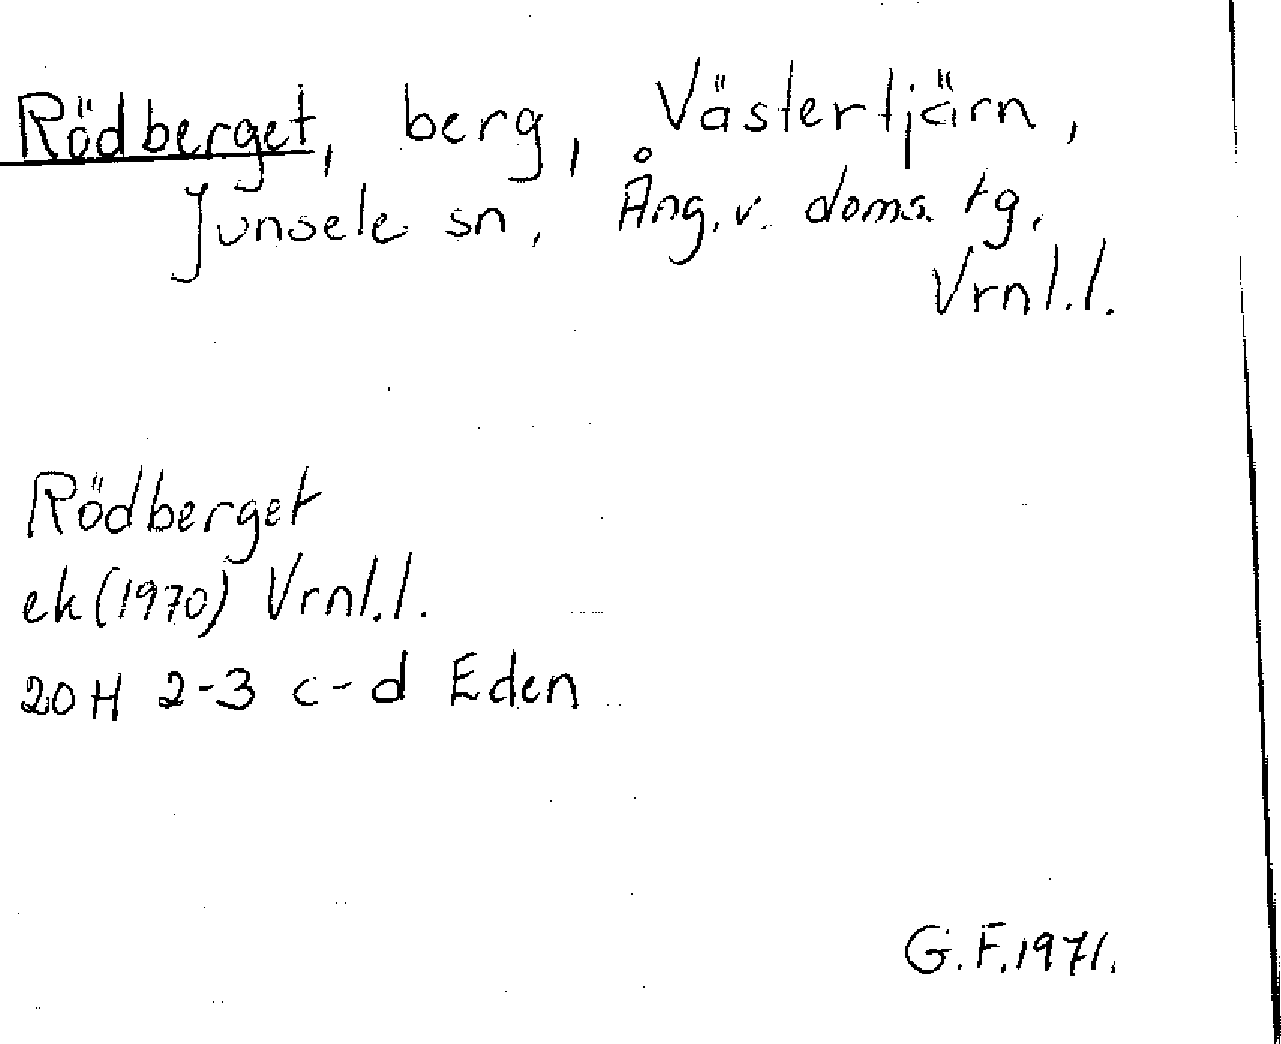 Rödberget, berg, Västertjärn,
Junsele sn, Ång. v. doms. tg.
Vrnl.l.
Rödberget
ek (1970) Vrnl.l.
20H 2-3 c-d Eden
G.F. 1971.